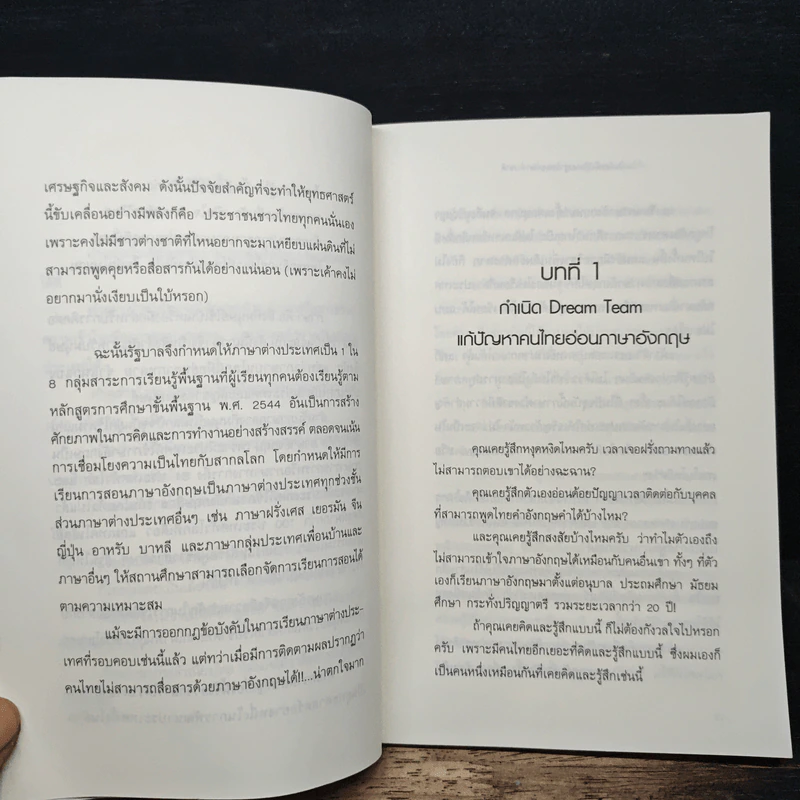 เศรษฐกิจและสังคม ดังนั้นปัจจัยสำคัญที่จะทำให้ยุทธศาสตร์
นี้ขับเคลื่อนอย่างมีพลังก็คือ ประชาชนชาวไทยทุกคนนั่นเอง
เพราะคงไม่มีชาวต่างชาติที่ไหนอยากจะมาเหยียบแผ่นดินที่ไม่
สามารถพูดคุยหรือสื่อสารกันได้อย่างแน่นอน (เพราะเค้าคงไม่
อยากมานั่งเงียบเป็นใบ้หรอก)
ฉะนั้นรัฐบาลจึงกำหนดให้ภาษาต่างประเทศเป็น 1 ใน
8 กลุ่มสาระการเรียนรู้พื้นฐานที่ผู้เรียนทุกคนต้องเรียนรู้ตาม
หลักสูตรการศึกษาขั้นพื้นฐาน พ.ศ. 2544 อันเป็นการสร้าง
ศักยภาพในการคิดและการทำงานอย่างสร้างสรรค์ ตลอดจนเน้น
การเชื่อมโยงความเป็นไทยกับสากลโลก โดยกำหนดให้มีการ
เรียนการสอนภาษาอังกฤษเป็นภาษาต่างประเทศทุกช่วงชั้น
ส่วนภาษาต่างประเทศอื่นๆ เช่น ภาษาฝรั่งเศส เยอรมัน จีน
ญี่ปุ่น อาหรับ บาหลี และภาษากลุ่มประเทศเพื่อนบ้านและ
ภาษาอื่นๆ ให้สถานศึกษาสามารถเลือกจัดการเรียนการสอนได้
ตามความเหมาะสม
แม้จะมีการออกกฎข้อบังคับในการเรียนภาษาต่างประ-
เทศที่รอบคอบเช่นนี้แล้ว แต่ทว่าเมื่อมีการติดตามผลปรากฏว่า
คนไทยไม่สามารถสื่อสารด้วยภาษาอังกฤษได้!!...น่าตกใจมาก
บทที่ 1
กำเนิด Dream Team
แก้ปัญหาคนไทยอ่อนภาษาอังกฤษ
คุณเคยรู้สึกหงุดหงิดไหมครับ เวลาเจอฝรั่งถามทางแล้ว
ไม่สามารถตอบเขาได้อย่างฉะฉาน?
คุณเคยรู้สึกตัวเองอ่อนด้อยปัญญาเวลาติดต่อกับบุคคล
ที่สามารถพูดไทยคำอังกฤษคำได้บ้างไหม?
และคุณเคยรู้สึกสงสัยบ้างไหมครับ ว่าทำไมตัวเองถึง
ไม่สามารถเข้าใจภาษาอังกฤษได้เหมือนกับคนอื่นเขา ทั้งๆ ที่ตัว
เองก็เรียนภาษาอังกฤษมาตั้งแต่อนุบาล ประถมศึกษา มัธยม
ศึกษา กระทั่งปริญญาตรี รวมระยะเวลากว่า 20 ปี!
ถ้าคุณเคยคิดและรู้สึกแบบนี้ ก็ไม่ต้องกังวลใจไปหรอก
ครับ เพราะมีคนไทยอีกเยอะที่คิดและรู้สึกแบบนี้ ซึ่งผมเองก็
เป็นคนหนึ่งเหมือนกันที่เคยคิดและรู้สึกเช่นนี้